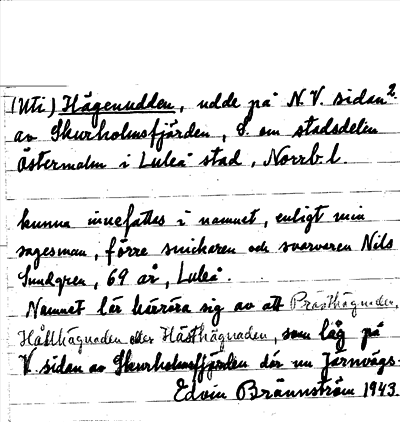 (Uti) Hägenudden, udde på N.V. sidan 2.
av Skurholmsfjärden, S. om stadsdelen
Östermalm i Luleå stad, Norrb. l.
kunna innefattas i namnet, enligt min
sagesman, förre snickaren och svarvaren Nils
Sundgren, 69 år, Luleå.
Namnet lär härröra sig av att Prästhägnaden,
Håtthägnaden eller Hästhägnaden, som låg på
V. sidan av Skurholmsfjärden där nu Järnvägs-
Edvin Brännström 1943.